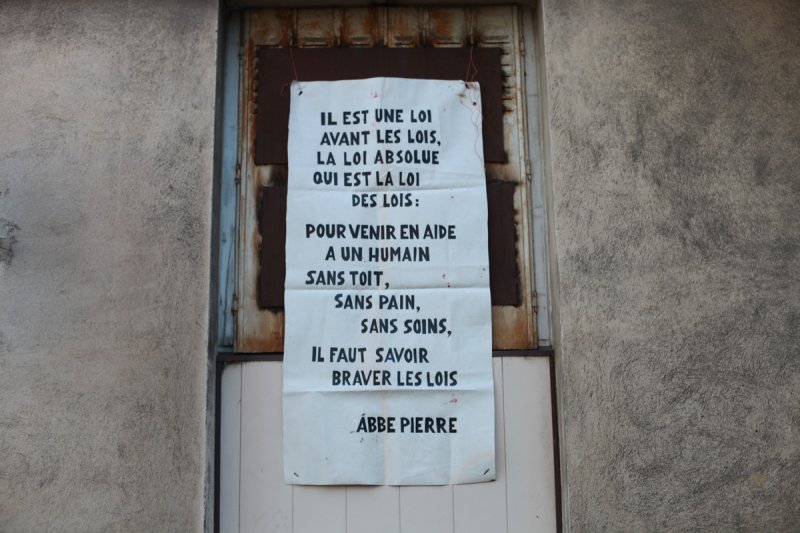 IL EST UNE LOI
AVANT LES LOIS,
LA LOI ABSOLUE
QUI EST LA LOI
DES LOIS:
POUR VENIR EN AIDE
A UN HUMAIN
SANS TOIT,
SANS PAIN,
SANS SOINS,
IL FAUT SAVOIR
BRAVER LES LOIS
ÁBBE PIERRE